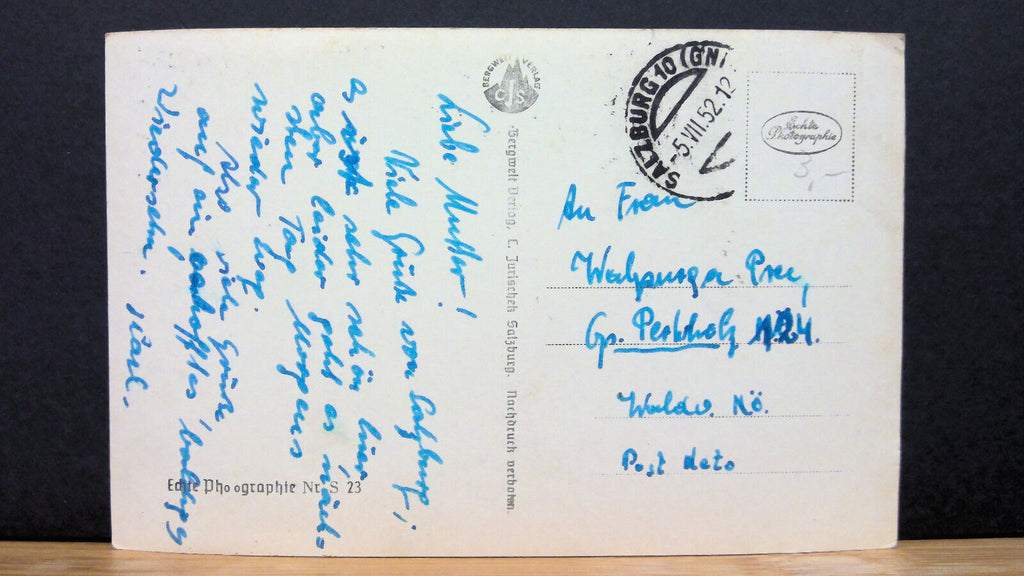 Liebe Mutter!
Viele Grüße von Salzburg,
es ist sehr schön hier
aber leider geht es näch-
sten Tag Morgens
wieder weg.
Also viele Grüße
auf ein baldiges
Wiedersehen.
Echte Photographie Nr. S 23
BERGWELT VERLAG
CJS
Bergwelt Verlag, C. Jurischek Salzburg. Nachdruck verboten.
SALZBURG 10 (GNI
-5.VII.52.12
Echte
Photographie
3,-
An Frau
Gp. Pertholz N 24.
Waldv. NÖ.
Post